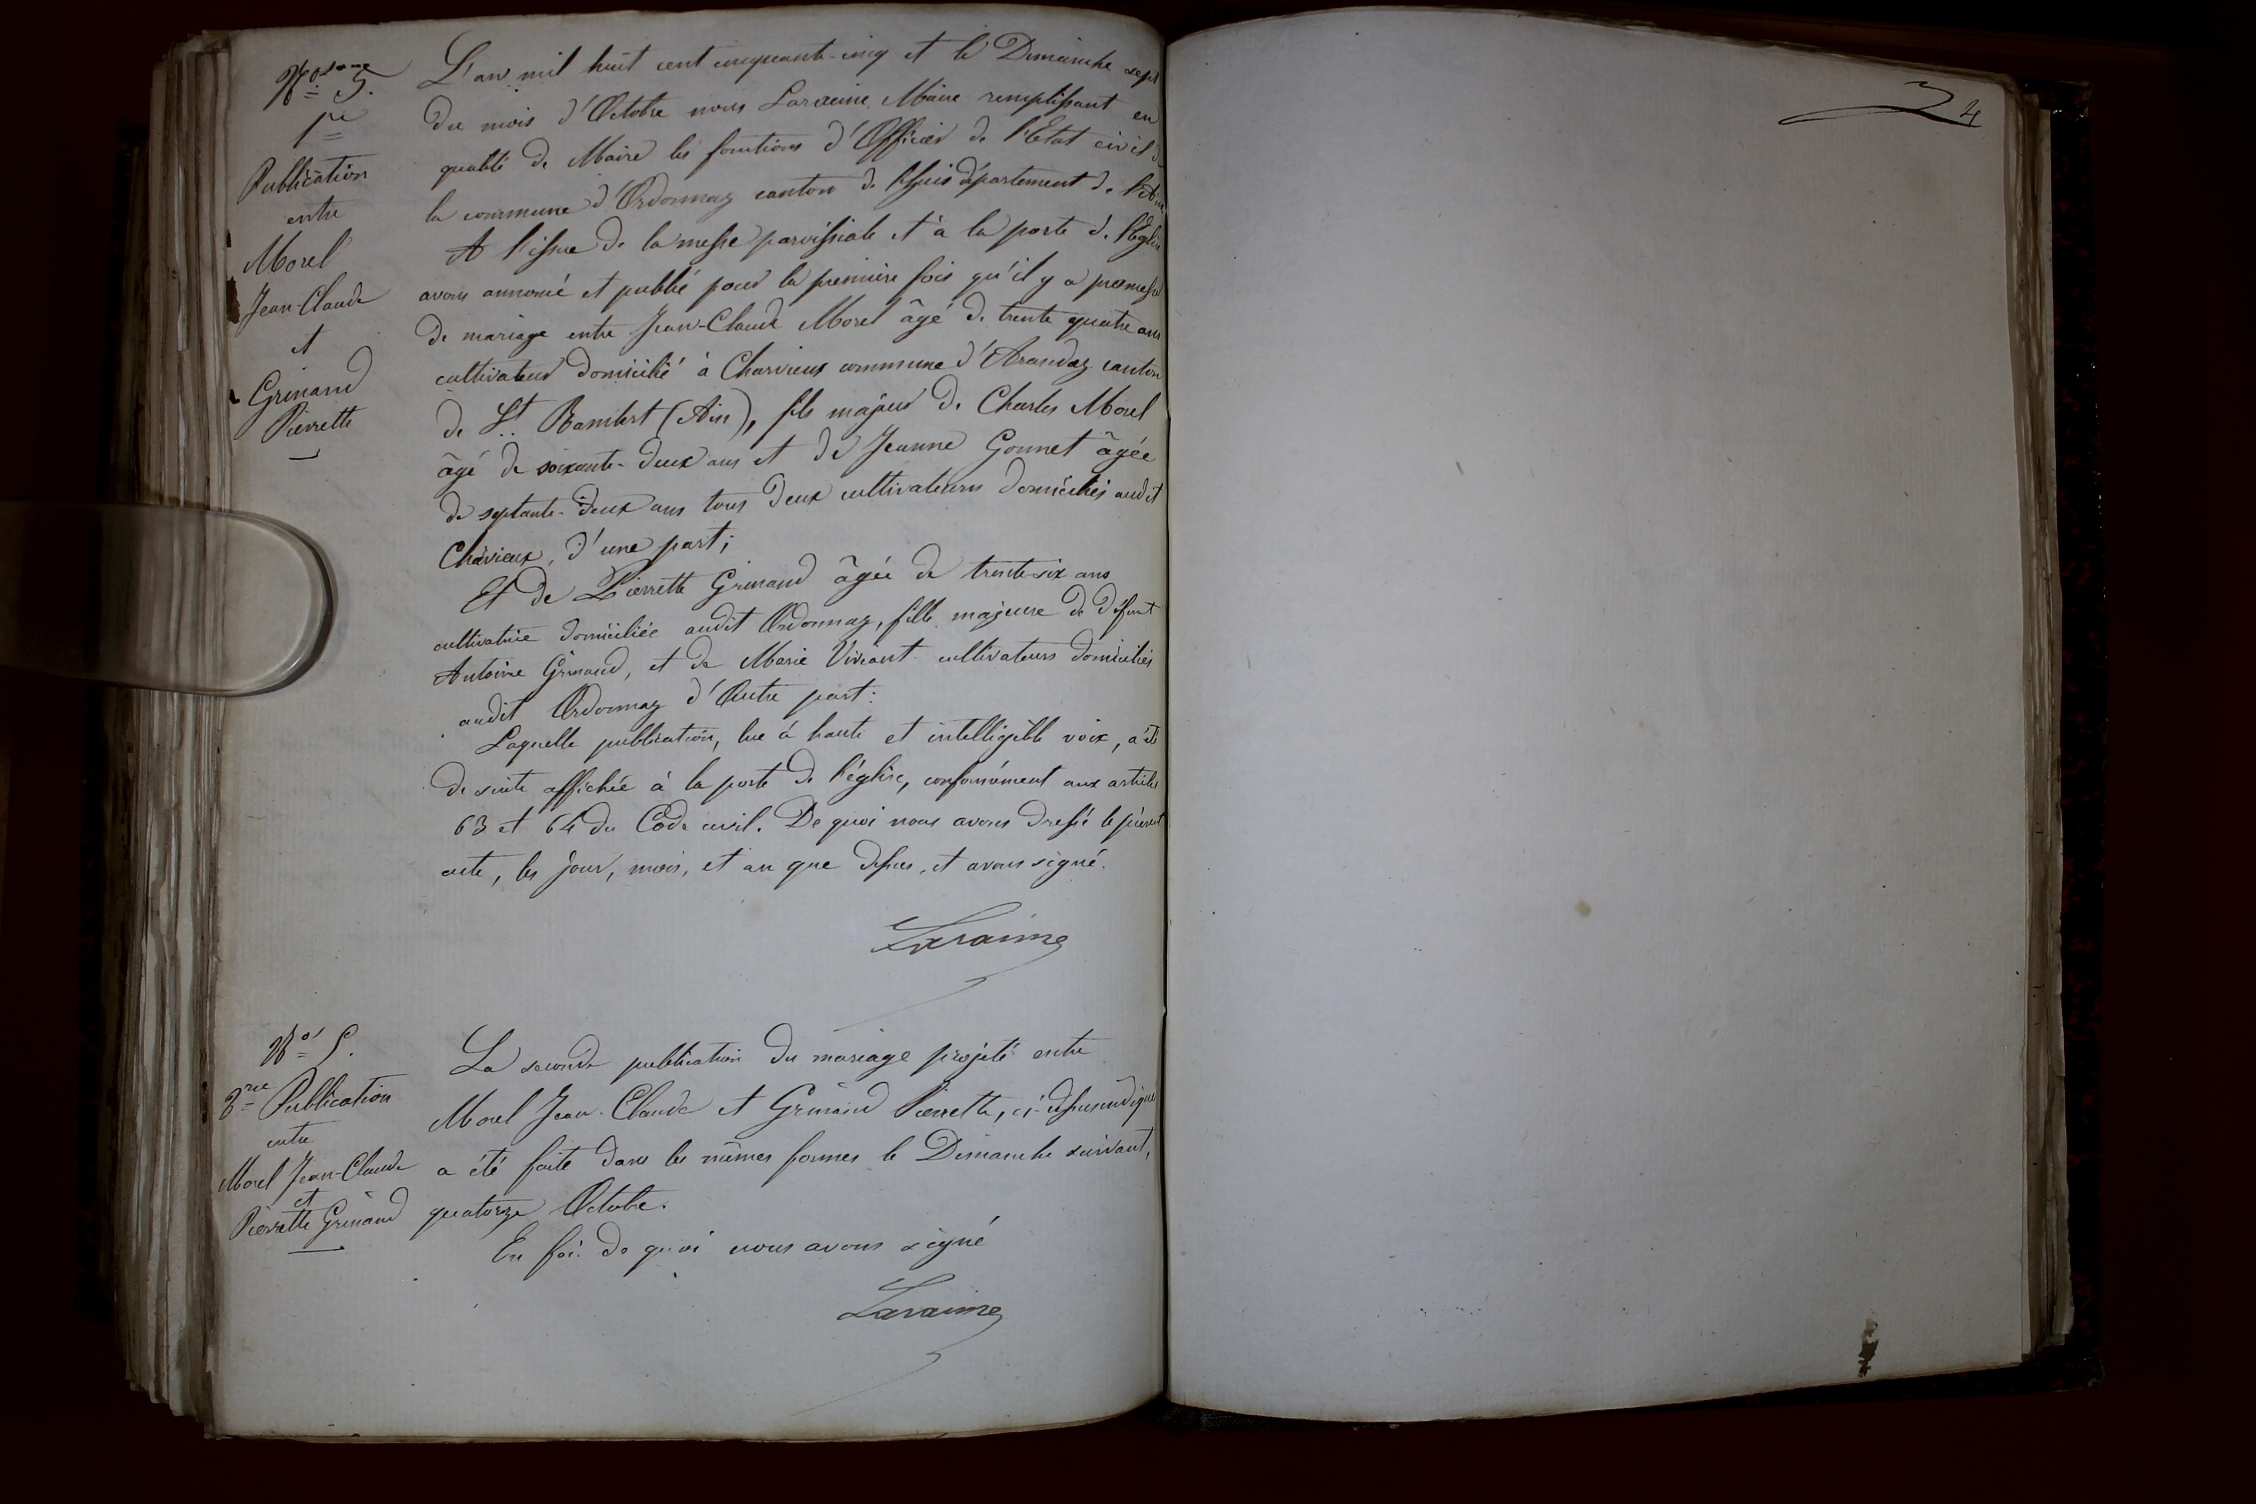 N° 5.
1re
Publication
entre
Morel
Jean-Claude
et
Grinand
Pierrette
L'an mil huit cent cinquante-cinq et le Dimanche sept
du mois d'Octobre nous Laraime Maire remplissant en
qualité de Maire les fonctions d'Officier de l'Etat civil de
la commune d'Ordonnaz canton de Lhuis département de l'Ain
A l'issue de la messe paroissiale et à la porte de l'église
avons annoncé et publié pour la première fois qu'il y a promesse
de mariage entre Jean-Claude Morel âgé de trente quatre ans
cultivateur domicilié à Charvieux commune d'Arandaz canton
de St Rambert (Ain), fils majeur de Charles Morel
âgé de soixante-deux ans et de Jeanne Gonnet âgée
de septante-deux ans tous deux cultivateurs domiciliés audit
Charvieux, d'une part;
Et de Pierrette Grinand âgée de trente six ans
cultivatrice domiciliée audit Ordonnaz, fille majeure de défunt
Antoine Grinand, et de Marie Viviant cultivateurs domiciliés
audit Ordonnaz d'Autre part:
Laquelle publication, lue à haute et intelligible voix, a été
de suite affichée à la porte de l'église, conformément aux articles
63 et 64 du Code civil. De quoi nous avons dressé le présent
acte, les jour, mois, et an que dessus, et avons signé.
Laraime
N° 5.
2me Publication
entre
Morel Jean-Claude
et
Pierrette Grinand
La seconde publication du mariage projeté entre
Morel Jean-Claude et Grinand Pierrette, ci-dessus indiqué
a été faite dans les mêmes formes le Dimanche suivant,
quatorze Octobre.
En foi de quoi nous avons signé
Laraime
4